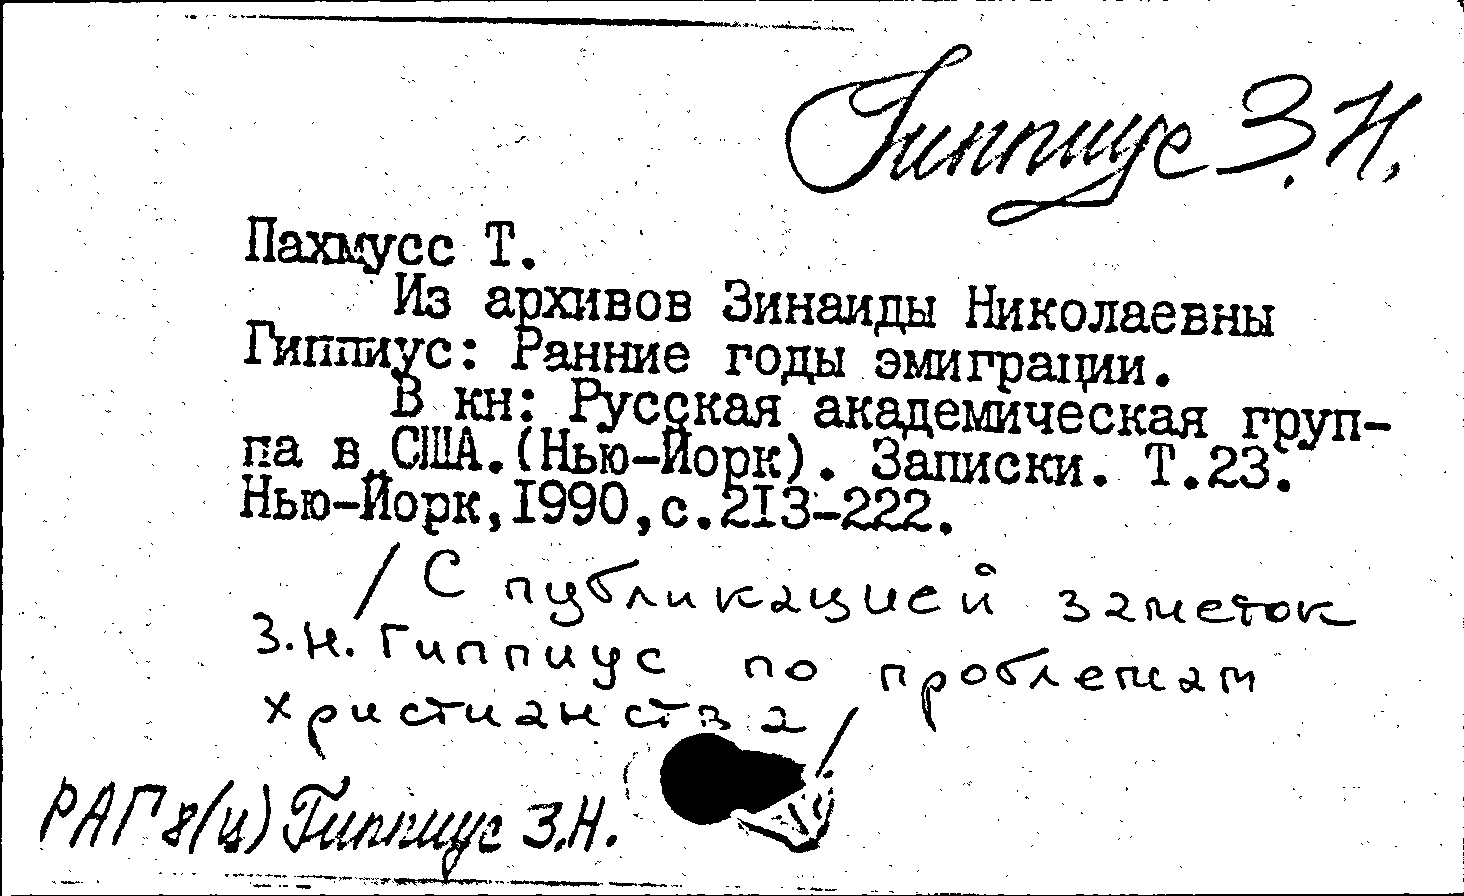 Гиппиус З.Н.
Пахмусс Т.
Из архивов Зинаиды Николаевны
Гиппиус: Ранние годы эмиграции.
В кн: Русская академическая груп-
па в США.(Нью-Йорк). Записки. Т.23.
Нью-Йорк,I990,с.2I3-222.
/ С публикацией заметок
З.Н. Гиппиус по проблемам
христианства /
РАГ 8(ц) Гиппиус З.Н.